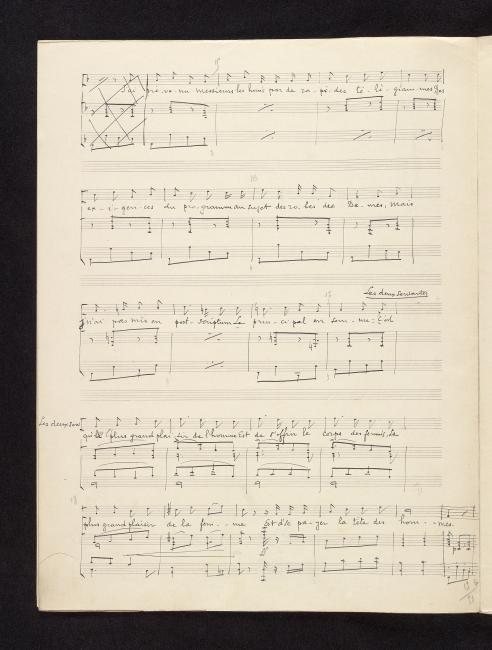 J'ai pré-ve-nu Messieurs les hous par de ra-pi-des té-lé-gram-mes Des
ex-i-gen-ces du pro-gramme au sujet des ro-bes des Da-mes, Mais
Les deux servantes
je n'ai pas mis en post-scriptum Le prin-ci-pal en som-me: C'est
Les deux serv
qu'le plus grand plai-sir de l'homme Est de s'offrir le corps des femmes, Le
plus grand plaisir de la fem-me Est d'se pa-yer la tête des hom-mes.